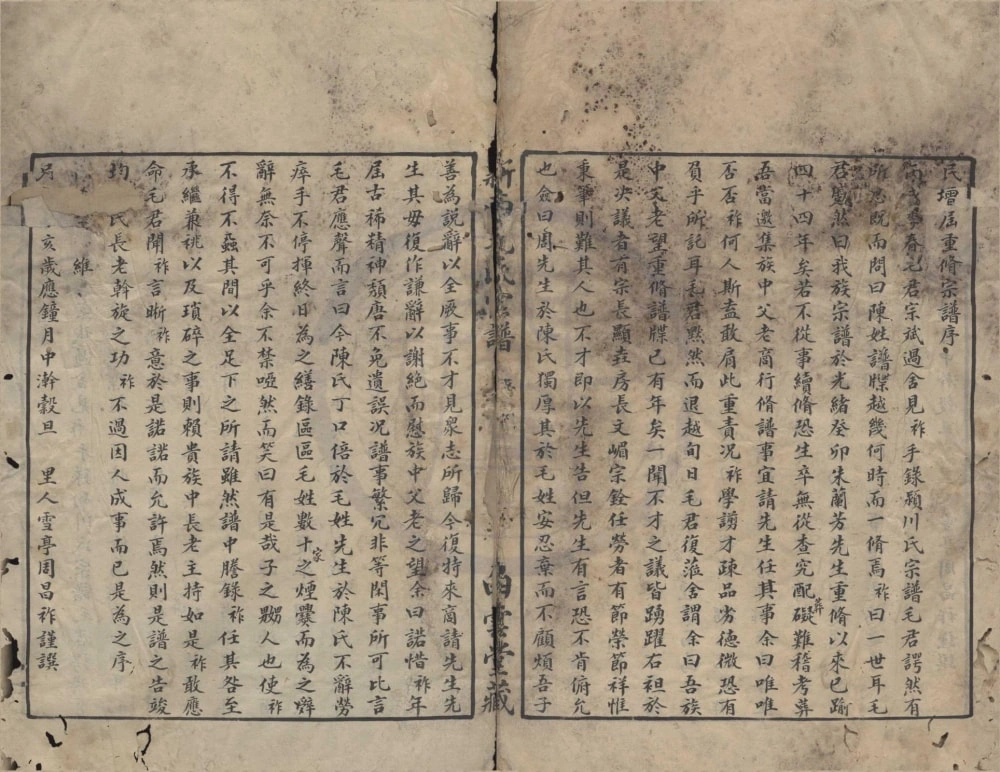 民壇屆重脩宗譜序
春毛君宗斌過舍見祚手錄潁川氏宗譜毛君諤然有
所思既而問曰陳姓譜牒越幾何時而一脩焉祚曰一世耳毛
君蹙然曰我族宗譜於光緒癸卯朱蘭芳先生重脩以來已踰
四十四年矣若不從事續脩恐生卒無從查究配礙難稽考葬
吾當邀集族中父老商行脩譜事宜請先生任其事余曰唯唯
否否祚何人斯盍敢肩此重責况祚學謭才疎品劣德微恐有
負乎所託耳毛君默然而退越旬日毛君復蒞舍謂余曰吾族
中父老望重脩譜牒已有年矣一聞不才之議皆踴躍右袒於
是決議者有宗長顯垚房長文嵋宗銓任勞者有節榮節祥惟
秉筆則難其人也不才即以先生告但先生有言恐不肯俯允
也僉曰周先生於陳氏獨厚其於毛姓安忍棄而不顧煩吾子
氏宗譜
西雲堂藏
善為說辭以全厥事不才見衆志所歸今復特來商請先生先
生其毋復作謙辭以謝絕而慰族中父老之望余曰諾惜祚年
屆古稀精神頹唐不免遺誤况譜事繁冗非等閑事所可比言
毛君應聲而言曰今陳氏丁口倍於毛姓先生於陳氏不辭勞
瘁手不停揮終日為之繕錄區區毛姓數十家之煙爨而為之辤
辭無余不可乎余不禁啞然而笑曰有是哉子之嬲人也使祚
不得不蝨其間以全足下之所請雖然譜中謄錄祚任其咎至
承繼兼祧以及瑣碎之事則賴貴族中長老主持如是祚敢應
命毛君聞祚言晰祚意於是諾諾而允許焉然則是譜之告竣
均氏長老斡旋之功祚不過因人成事而已是為之序
維
亥歲應鐘月中澣穀旦　里人雪亭周曰祚謹譔